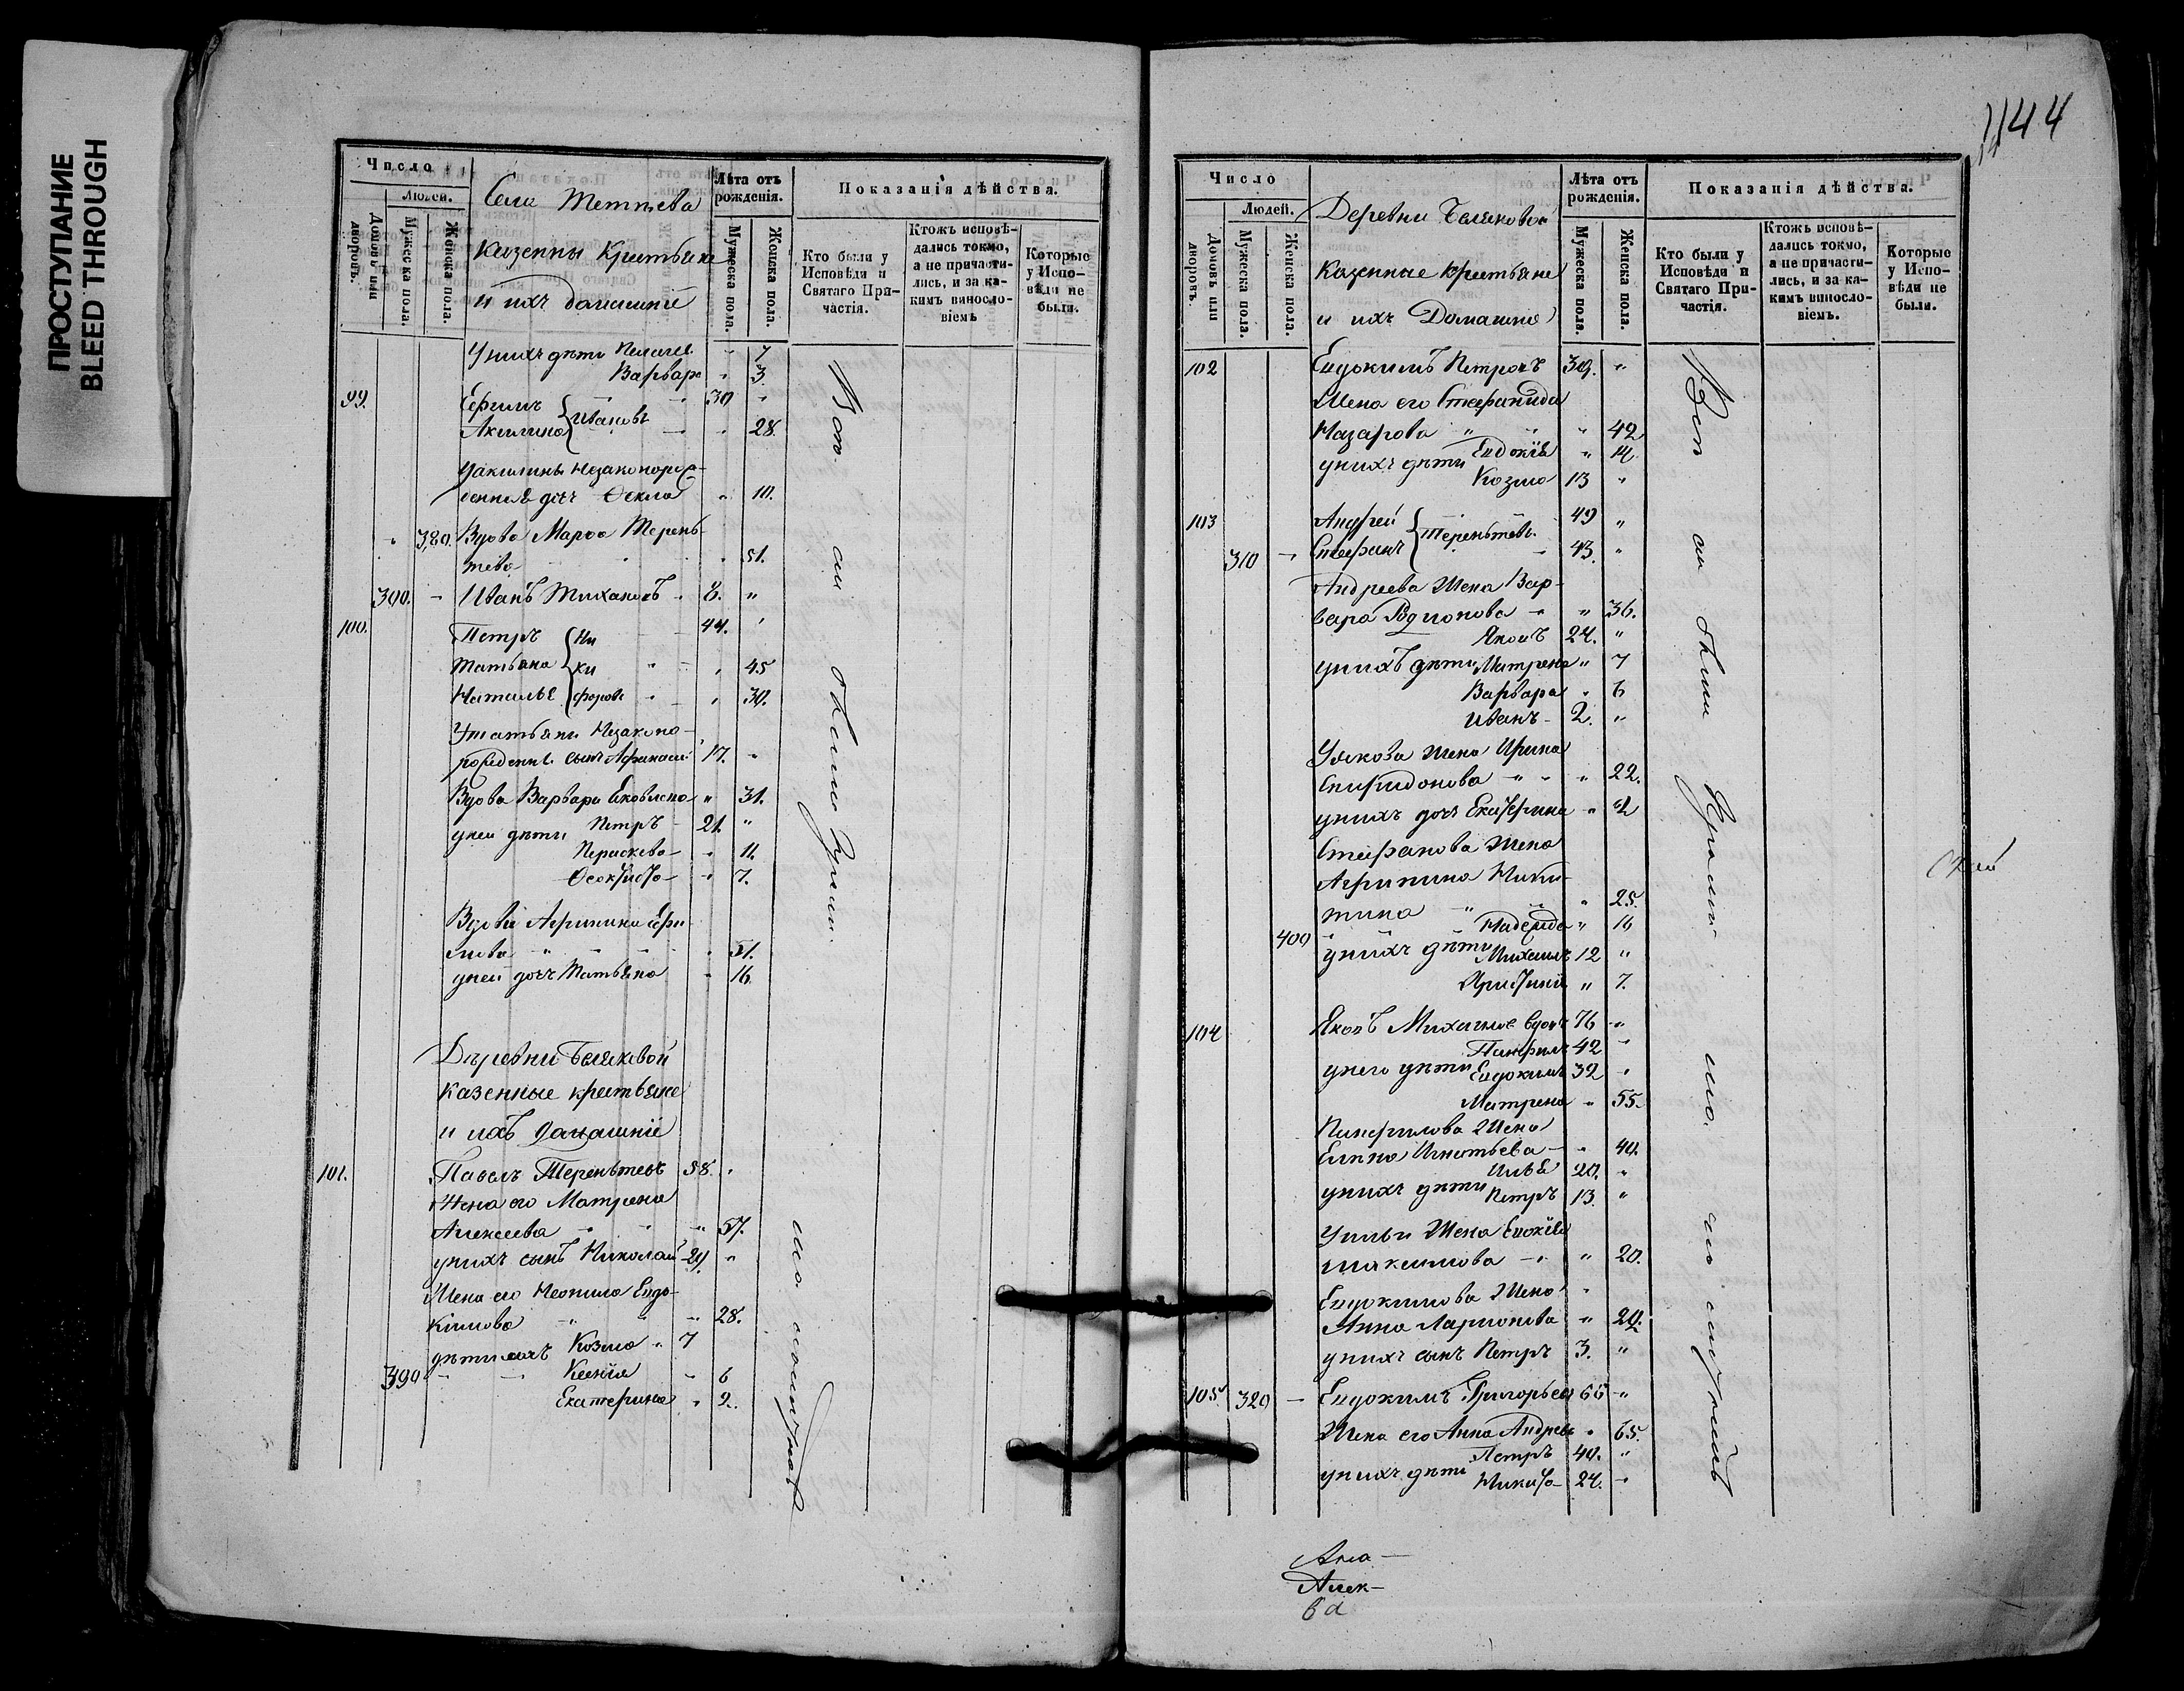 ПРОСТУПАНИЕ
BLEED THROUGH
Число
Людей.
Домовъ или дворовъ.
Мужеска пола.
Женска пола.
Села
Казенны Крестьяне
и ихъ домашніе
Лѣта отъ рожденія.
Мужеска пола.
Женска пола.
Показанія дѣйства.
Кто были у Исповѣди и Святаго Причастія.
Ктожъ исповѣдались токмо, а не причастились, и за какимъ винословіемъ
Которые у Исповѣди не были.
У нихъ дѣти Пелагея " 7
Варвара " 3
99. Ефимъ 30 "
Акилина } Ивановы " 28.
У Акилины незаконорож-
денная дочь Фекла " 10.
380. Вдова Марфа Терень-
тева " 51.
300. Иванъ 8. "
100. Петръ { Ни 44.
Татьяна { ки " 45
Наталья { форовы " 30.
У Татьяны Незако но-
рожденны сынъ Афанасій 17. "
Вдова Варвара Яковлева " 31.
у ней дѣти Петръ 21. "
Параскева " 11.
Феоктиста " 7.
Вдова Агрипина Ефи-
мова " 51.
у ней дочь Татьяна " 16
Деревни Беляковой
казенные крестьяне
и ихъ домашніе
101. Павелъ Терентьевъ 58. "
Жена его Матрона
Алексеева " 57.
у нихъ сынъ Николай 29. "
Жена его Неонила Евдо-
кимова " 28.
дѣти ихъ Козма 7
390 Ксенія " 6
Екатерина " 2.
1144
Число
Людей.
Домовъ или дворовъ.
Мужеска пола.
Женска пола.
Деревни Беляковой
Казенные крестьяне
и ихъ Домашніе
Лѣта отъ рожденія.
Мужеска пола.
Женска пола.
Показанія дѣйства.
Кто были у Исповѣди и Святаго Причастія.
Ктожъ исповѣдались токмо, а не причастились, и за какимъ винословіемъ.
Которые у Исповѣди не были.
102 Евдокимъ Петровъ 39. "
Жена его Стефанида
Назарова " 42
у нихъ дѣти Евдокія " 14
Козма 13 "
103 Андрей 49 "
310 Стефанъ } Терентьевы 43. "
Андреева Жена Вар-
вара Родионова " 36.
Яковъ 24. "
у нихъ дѣти Матрена " 7
Варвара " 6
Иванъ 2. "
Якова жена Ирина
Спиридонова " 22.
у нихъ дочь Екатерина " 2
Стефанова жена
Агрипина Ники-
тина " 25.
400 Надежда "
у нихъ дѣти Михаилъ 12 "
" 7.
104 Яковъ Михайловъ вдовъ 76 "
Панфилъ 42 "
у него дѣти Евдокимъ 32 "
Матрена " 55.
Панфилова Жена
Игнатьева " 40.
Илья 20. "
у нихъ дѣти Петръ 13. "
У Ильи Жена Евдокія
Максимова " 20.
Евдокимова Жена
Анна Ларионова " 29.
у нихъ сынъ Петръ 3. "
105. 320 Евдокимъ Григорьевъ 65 "
Жена его Анна Андрева " 65.
Петръ 40. "
у нихъ дѣти Никита 24. "
Алек-
ва